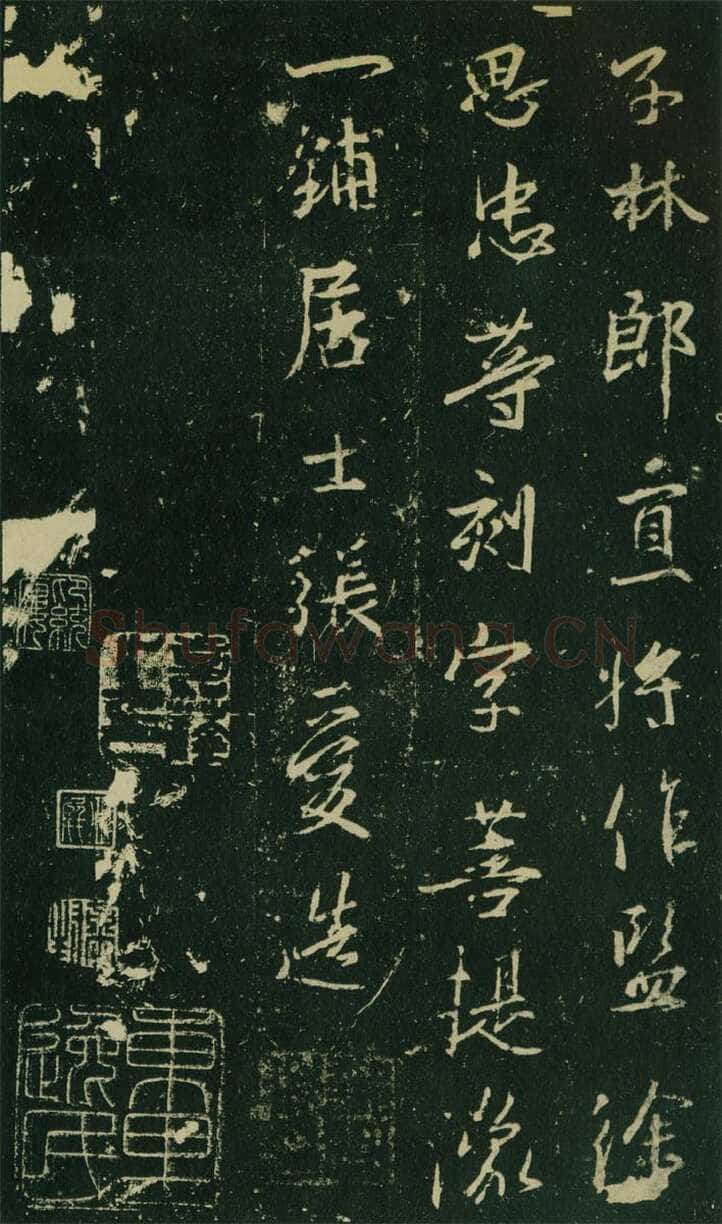 文林郎直將作監徐
思忠等刻字菩提像
一鋪居士張愛造
Shufawang.CN